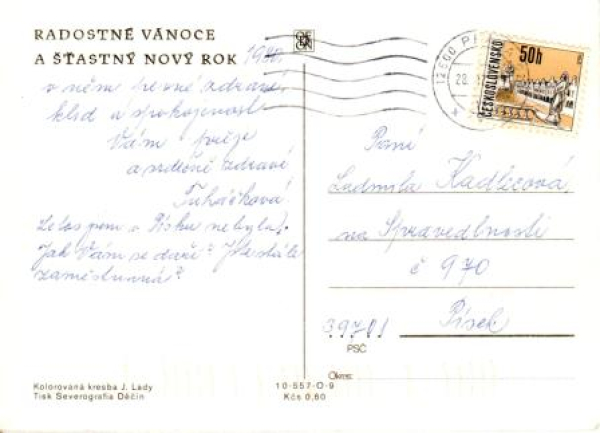 RADOSTNÉ VÁNOCE
A ŠŤASTNÝ NOVÝ ROK 1980.
v něm pevné zdraví,
klid a spokojenost
Vám přeje
a srdečně zdraví
Tuháčková.
Letos jsem v Písku nebyla.
Jak Vám se daří? Jste stále
zaměstnaná?
Kolorovaná kresba J. Lady
Tisk Severografia Děčín
10-557-O-9
Kčs 0,60
ČESKOSLOVENSKO
50h
Paní
Ludmila Kadlecová,
na Spravedlnosti
č 970
39701 Písek
PSČ
Okres: